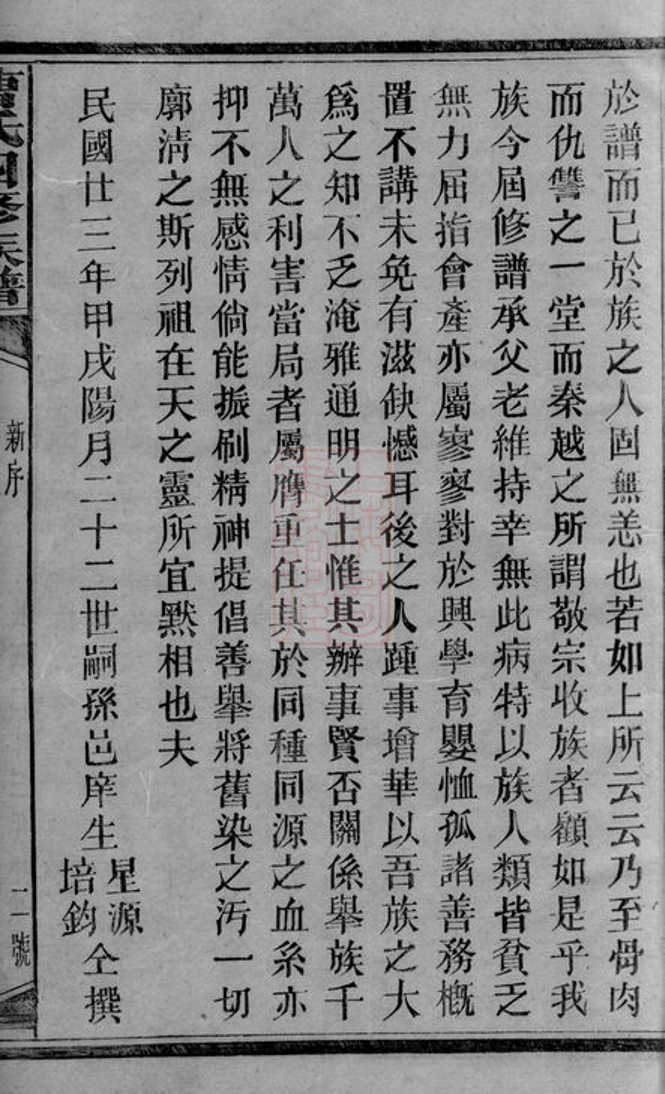 於譜而已於族之人固無恙也若如上所云云乃至骨肉
而仇讐之一堂而秦越之所謂敬宗收族者顧如是乎我
族今屆修譜承父老維持幸無此病特以族人類皆貧乏
無力屆指會產亦屬寥寥對於興學育嬰恤孤諸善務概
置不講未免有滋缺憾耳後之人踵事增華以吾族之大
爲之知不乏淹雅通明之士惟其辦事賢否關係舉族千
萬人之利害當局者屬膺重任其於同種同源之血系亦
抑不無感情倘能振刷精神提倡善舉將舊染之污一切
廓清之斯列祖在天之靈所宜默相也夫
民國廿三年甲戌陽月二十二世嗣孫邑庠生
星源
培鈞
仝撰
氏四修族譜
新序
二號